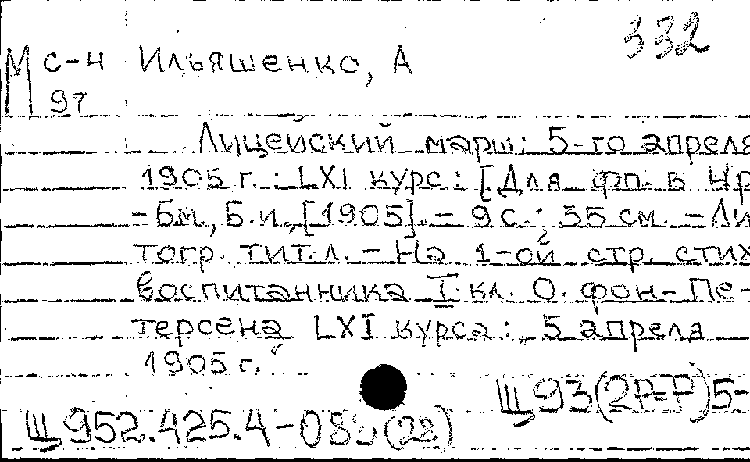 332
М с-н Ильяшенко, А
97
Лицейский марш: 5-го апреля
1905 г.: LXI курс: [Для фп. в
-Бм, Б.и., [1905]. - 9 с.; 35 см. - Ли-
тогр. тит. л. - На 1-ой стр. стих
воспитанника I кл. О. фон-Пе-
терсена LXI курса: 5 апреля
1905 г.
Щ93(2Р-Р)5-
Щ952.425.4-089(28)